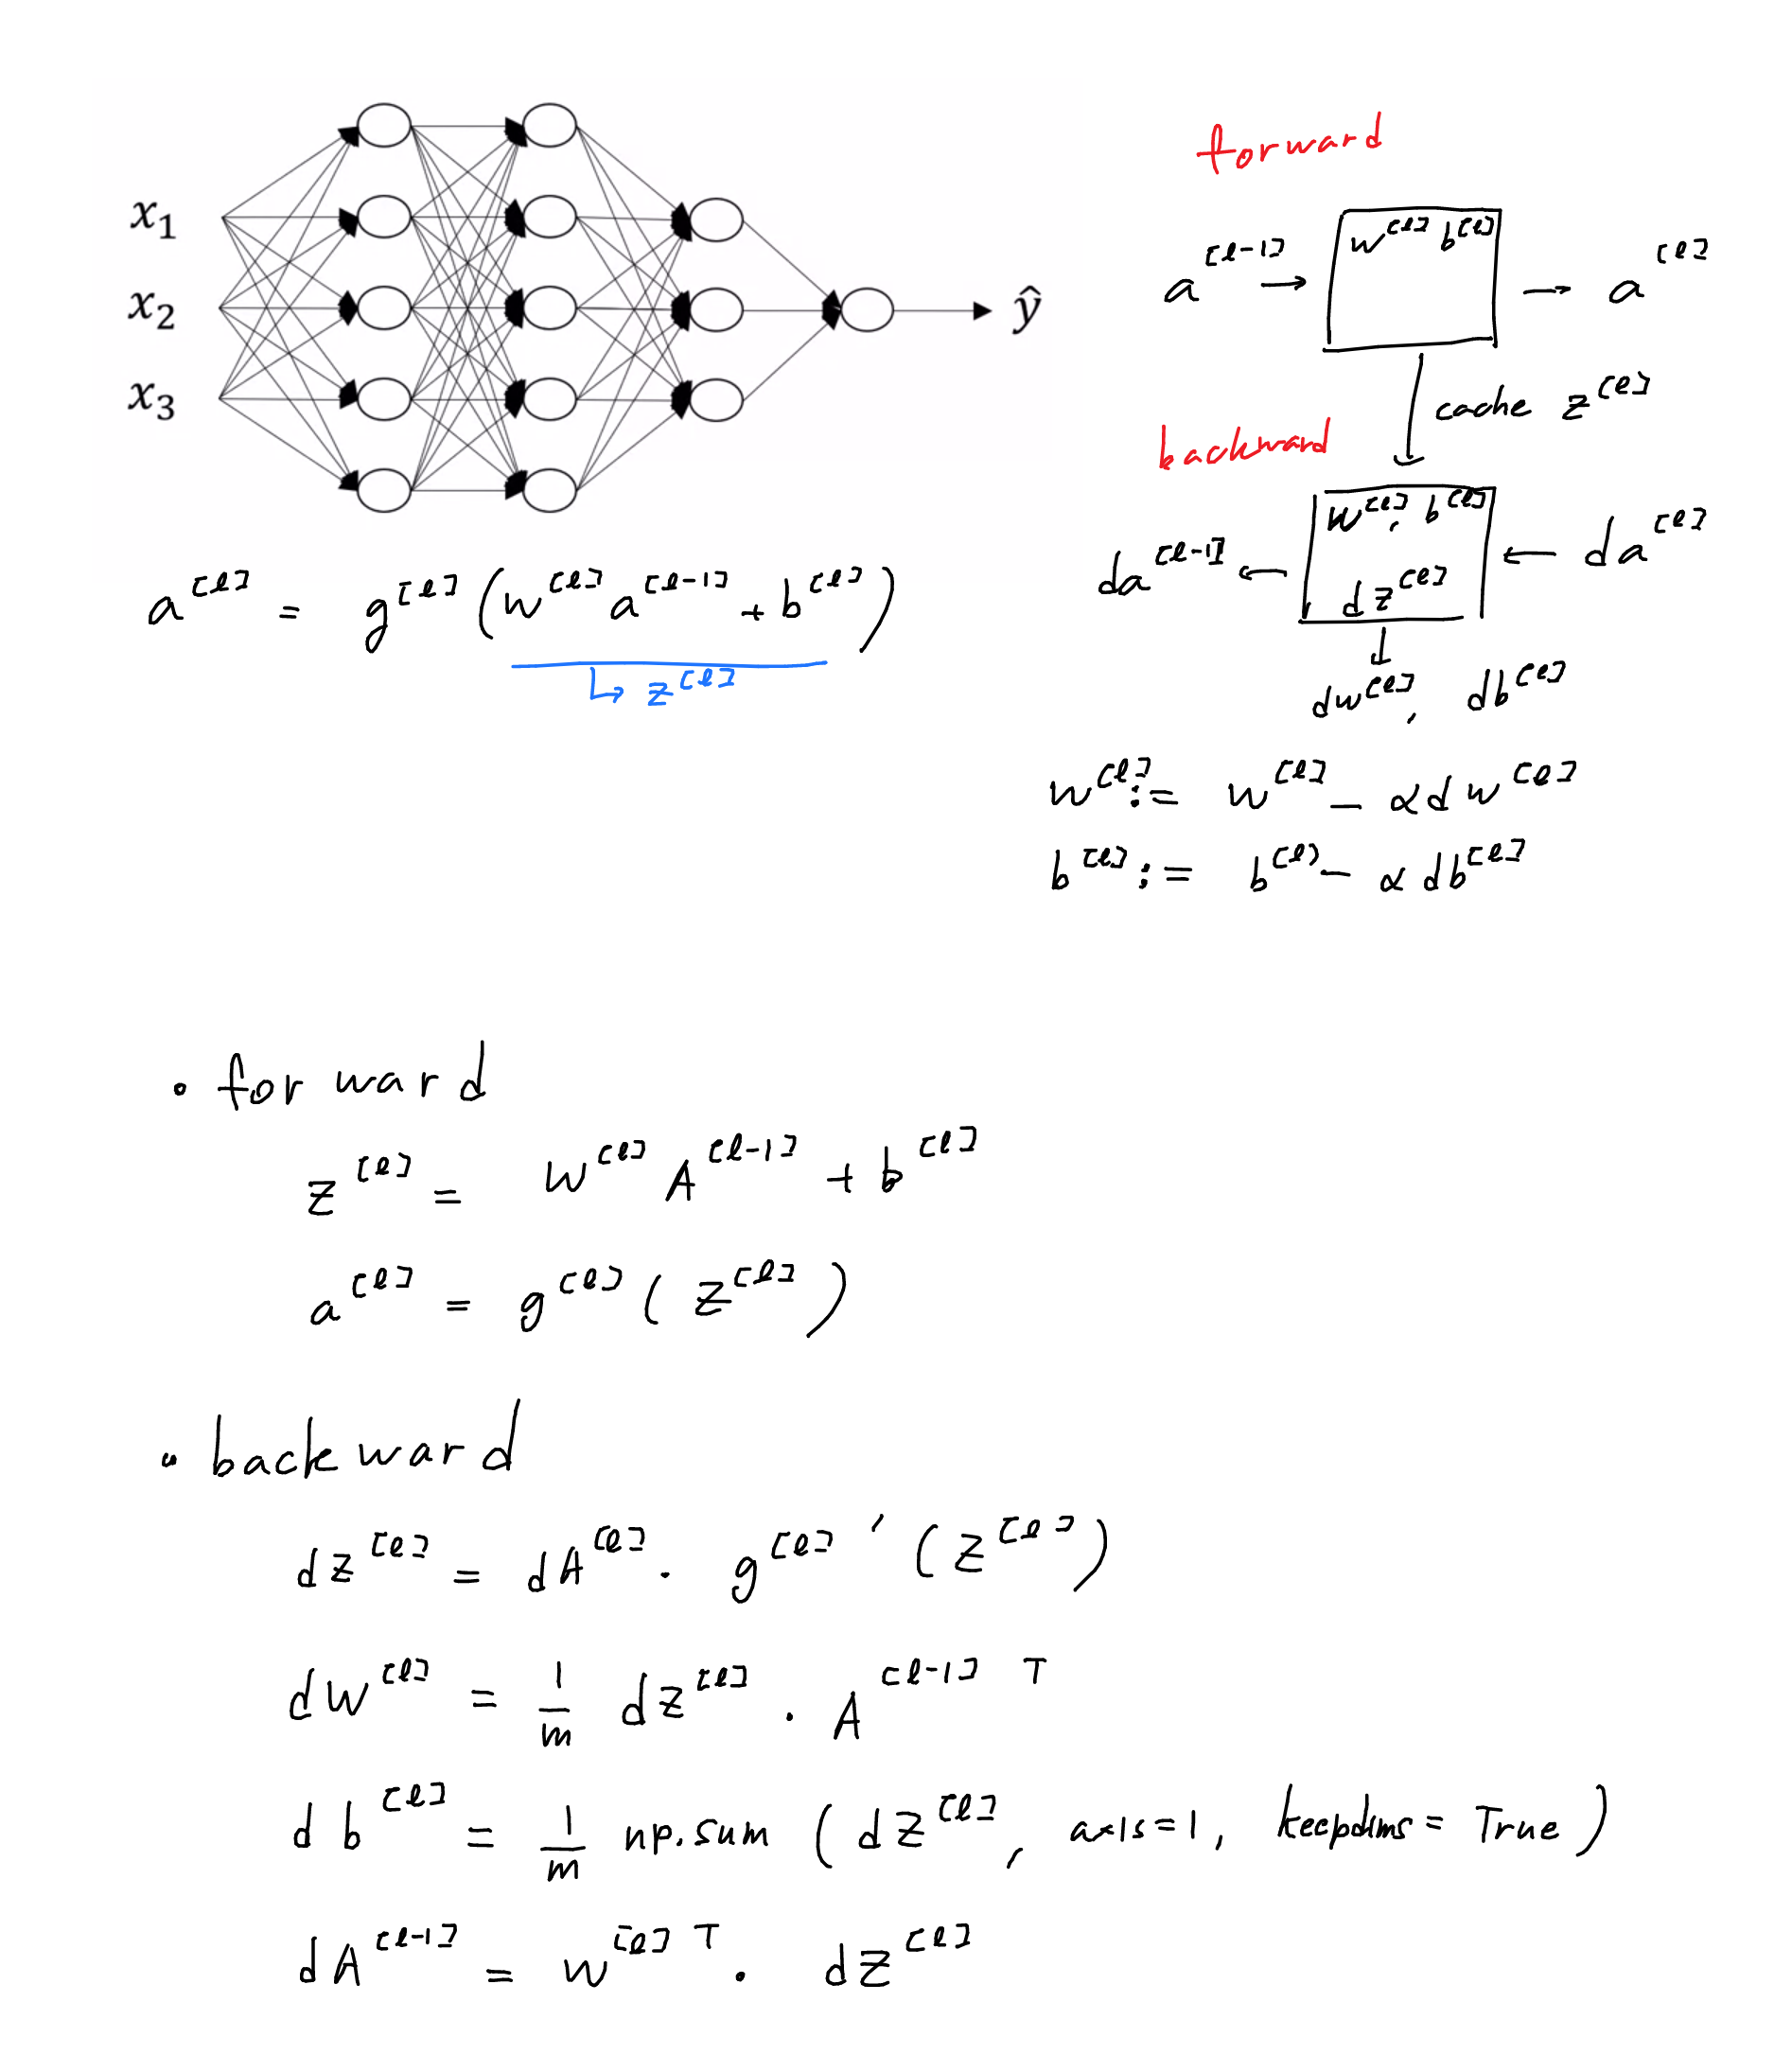 x₁
x₂
x₃
ŷ
a^[l] = g^[l] (w^[l] a^[l-1] + b^[l])
↳ z^[l]
forward
a^[l-1] → w^[l] b^[l] → a^[l]
cache z^[l]
backward
da^[l-1] ← w^[l], b^[l] ← da^[l]
dz^[l]
dw^[l], db^[l]
w^[l] := w^[l] - αdw^[l]
b^[l] := b^[l] - αdb^[l]
• forward
z^[l] = w^[l] A^[l-1] + b^[l]
a^[l] = g^[l] (z^[l])
• backward
dz^[l] = dA^[l] · g^[l]′ (z^[l])
dw^[l] = 1/m dz^[l] · A^[l-1] T
db^[l] = 1/m np.sum (dz^[l], axis=1, keepdims=True)
dA^[l-1] = w^[l] T · dz^[l]